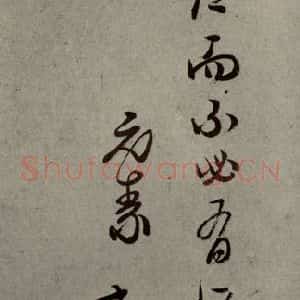 而不必有
危素
Shufawang.CN